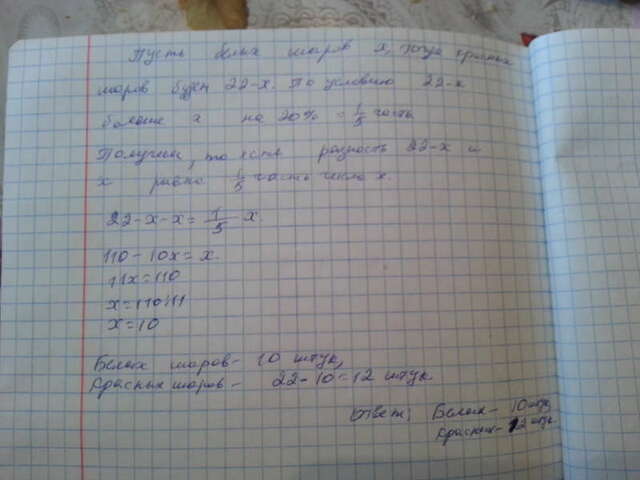 Пусть белых шаров x, тогда красных
шаров будет 22-x. По условию 22-x
больше x на 20% = 1/5 часть
Получим, то есть разность 22-x и
x равно 1/5 часть числа x.
22-x-x = 1/5 x.
110-10x=x.
11x=110
x=110:11
x=10
Белых шаров- 10 штук,
Красных шаров- 22-10=12 штук
Ответ: Белых- 10 штук
Красных- 12 штук